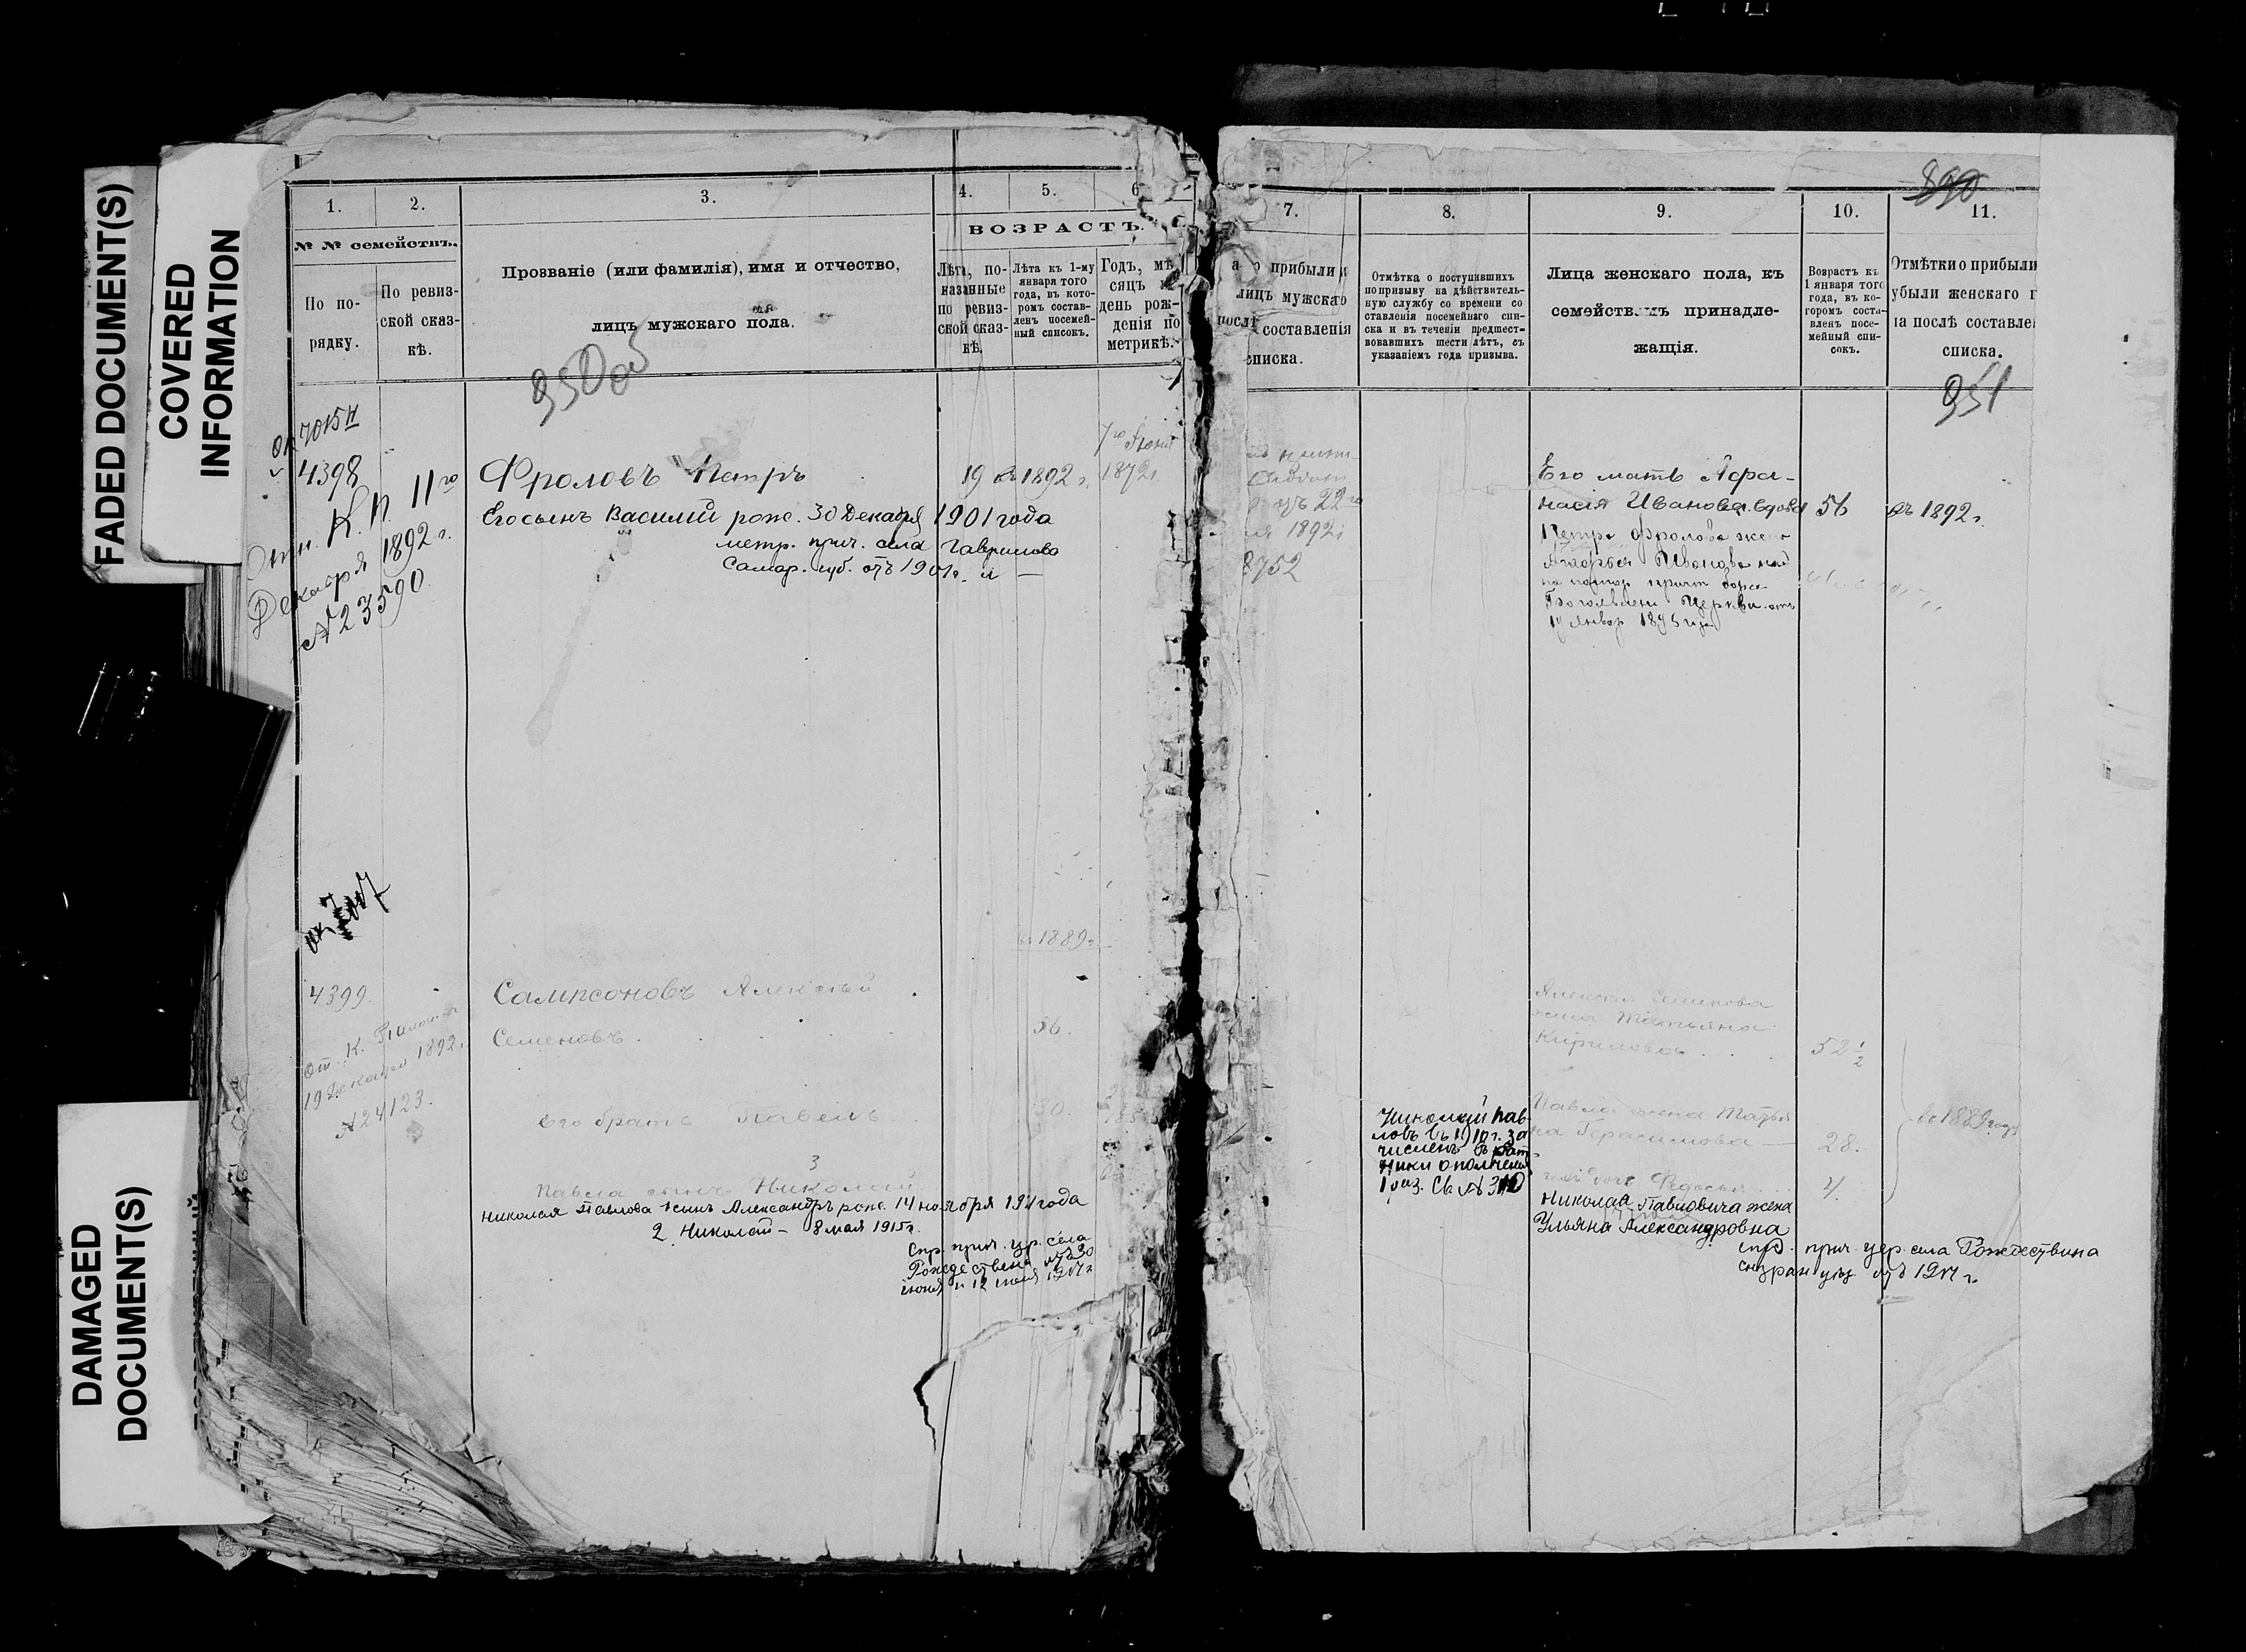 FADED DOCUMENT(S)
COVERED
INFORMATION
DAMAGED
DOCUMENT(S)
1.
2.
3.
4.
5.
6
№ № семействъ.
По по-
рядку.
По ревиз-
ской сказ-
кѣ.
Прозваніе (или фамилія), имя и отчество,
лицъ мужскаго пола.
ВОЗРАСТЪ.
Лѣта, по-
казанные
по ревиз-
ской сказ-
кѣ.
Лѣта къ 1-му
января того
года, въ кото-
ромъ состав-
ленъ посемей-
ный списокъ.
Годъ, мѣ
сяцъ и
день рож-
денія по
метрикѣ.
950об
7015
4398
Отн. К. П. 11го
Декабря 1892 г.
№ 23590
Фроловъ Петръ
19 въ 1892 г.
7го Іюня
1872 г.
Его сынъ Василій рожд. 30 Декабря 1901 года
метр. прич. села Гаврилова
Самар. губ. отъ 1901 г.
7007
въ 1889 г.
4399.
От. К. Палаты
19 Декабря 1892 г.
№ 24123.
Сампсоновъ Алексѣй
Семеновъ
56.
Его братъ Павелъ
30.
3
Павла сынъ Николай
Николая Павлова 1 сынъ Александръ рожд. 14 ноября 1911 года
2. Николай – 8 мая 1915 г.
Спр. прич. цр. села
Рождествена отъ 30
іюня и 12 іюня 1917 г.
7.
8.
9.
10.
11.
890
о прибыли и
лицъ мужскаго
послѣ составленія
списка.
Отмѣтка о поступившихъ
по призыву на дѣйствитель-
ную службу со времени со
ставленія посемейнаго спи-
ска и въ теченіи предшест-
вовавшихъ шести лѣтъ, съ
указаніемъ года призыва.
Лица женскаго пола, къ
семействамъ принадле-
жащія.
Возрастъ къ
1 января того
года, въ ко-
торомъ соста-
вленъ посе-
мейный спи-
сокъ.
Отмѣтки о прибыли
убыли женскаго п
на послѣ составлен
списка.
951
22го
1892 г.
8752
Его мать Афа-
насія Иванова вдова
56
въ 1892 г.
Петра Фролова жена
Агафья Иванова
Богоявлен. Церкви отъ
Январ 1895 года
Алексѣя Семенова
жена Татьяна
Кирилова
52 1/2
Павла жена Татья
на Герасимова
28.
въ 1889 году
дочь Федосья
4.
Николай Пав-
ловъ въ 1910 г. за
численъ въ рат
ники ополченія
1 раз. Св. №
Николая Павловича жена
Ульяна Александровна
спр. прич. цер. села Рождествина
сызран уѣз отъ 1917 г.